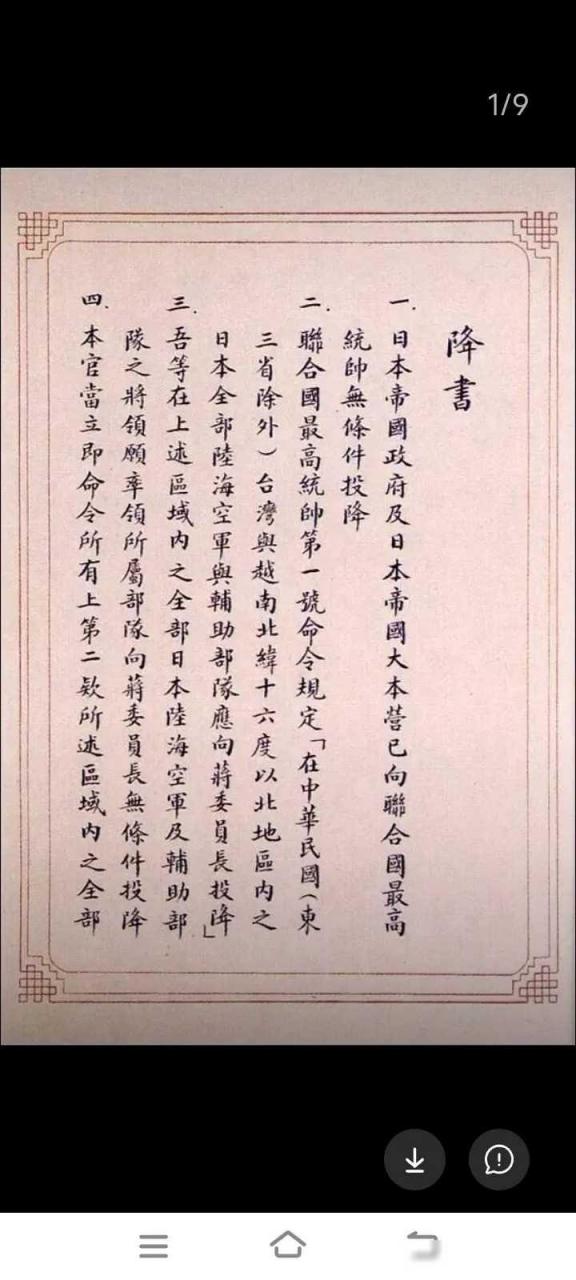 1/9
降書
一.日本帝國政府及日本帝國大本營已向聯合國最高
統帥無條件投降
二.聯合國最高統帥第一號命令規定「在中華民國(東
三省除外)台灣與越南北緯十六度以北地區內之
日本全部陸海空軍與輔助部隊應向蔣委員長投降」
三.吾等在上述區域內之全部日本陸海空軍及輔助部
隊之將領願率領所屬部隊向蔣委員長無條件投降
四.本官當立即命令所有上第二欵所述區域內之全部